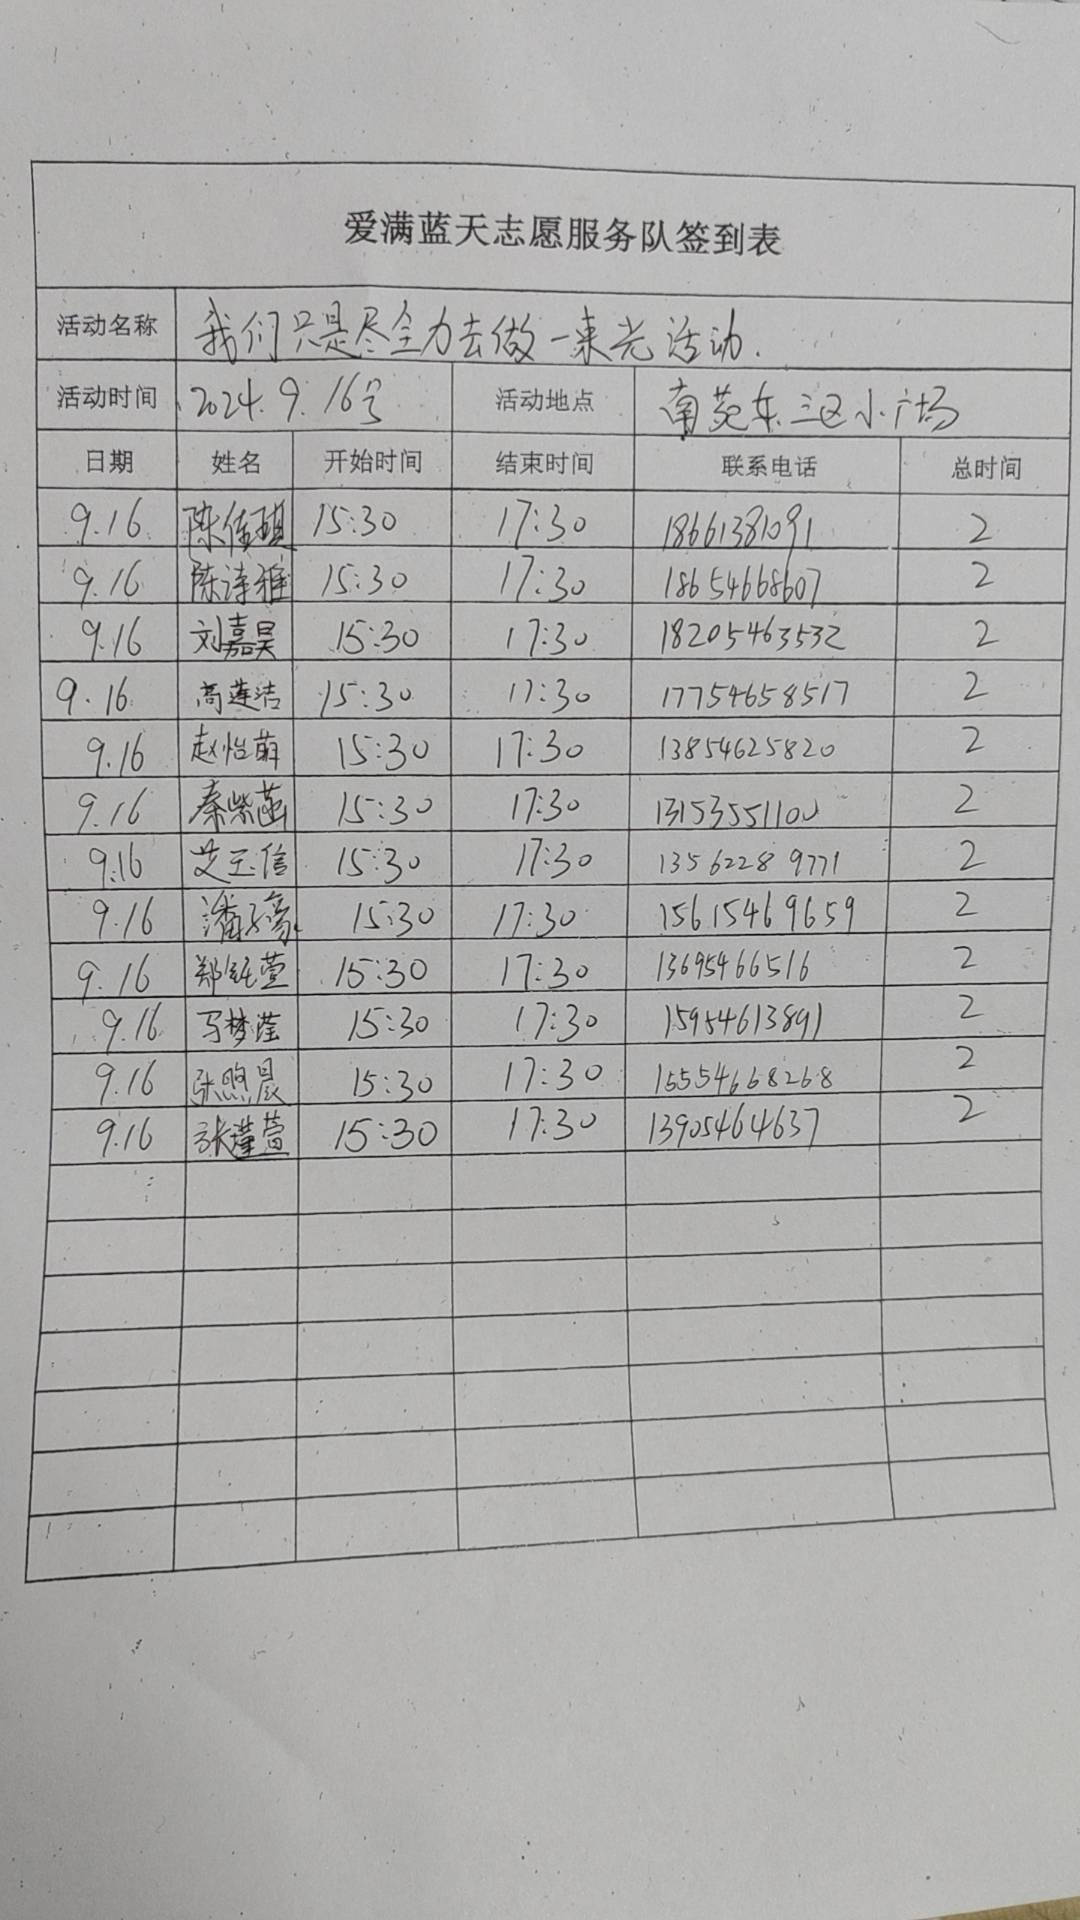 爱满蓝天志愿服务队签到表
活动名称 我们只是尽全力去做一束光活动.
活动时间 2024.9.16号 活动地点 南苑东三区小广场
日期 姓名 开始时间 结束时间 联系电话 总时间
9.16 陈佳琪 15:30 17:30 18661381091 2
9.16 陈诗雅 15:30 17:30 18654668607 2
9.16 刘嘉昊 15:30 17:30 18205463532 2
9.16 高莲洁 15:30 17:30 17754658517 2
9.16 赵怡萌 15:30 17:30 13854625820 2
9.16 秦紫菡 15:30 17:30 13153551100 2
9.16 艾玉信 15:30 17:30 13562289771 2
9.16 潘子豪 15:30 17:30 15615469659 2
9.16 郑钰萱 15:30 17:30 13695466516 2
9.16 马梦滢 15:30 17:30 15954613891 2
9.16 张煦晨 15:30 17:30 15554668268 2
9.16 张瑾萱 15:30 17:30 13905464637 2